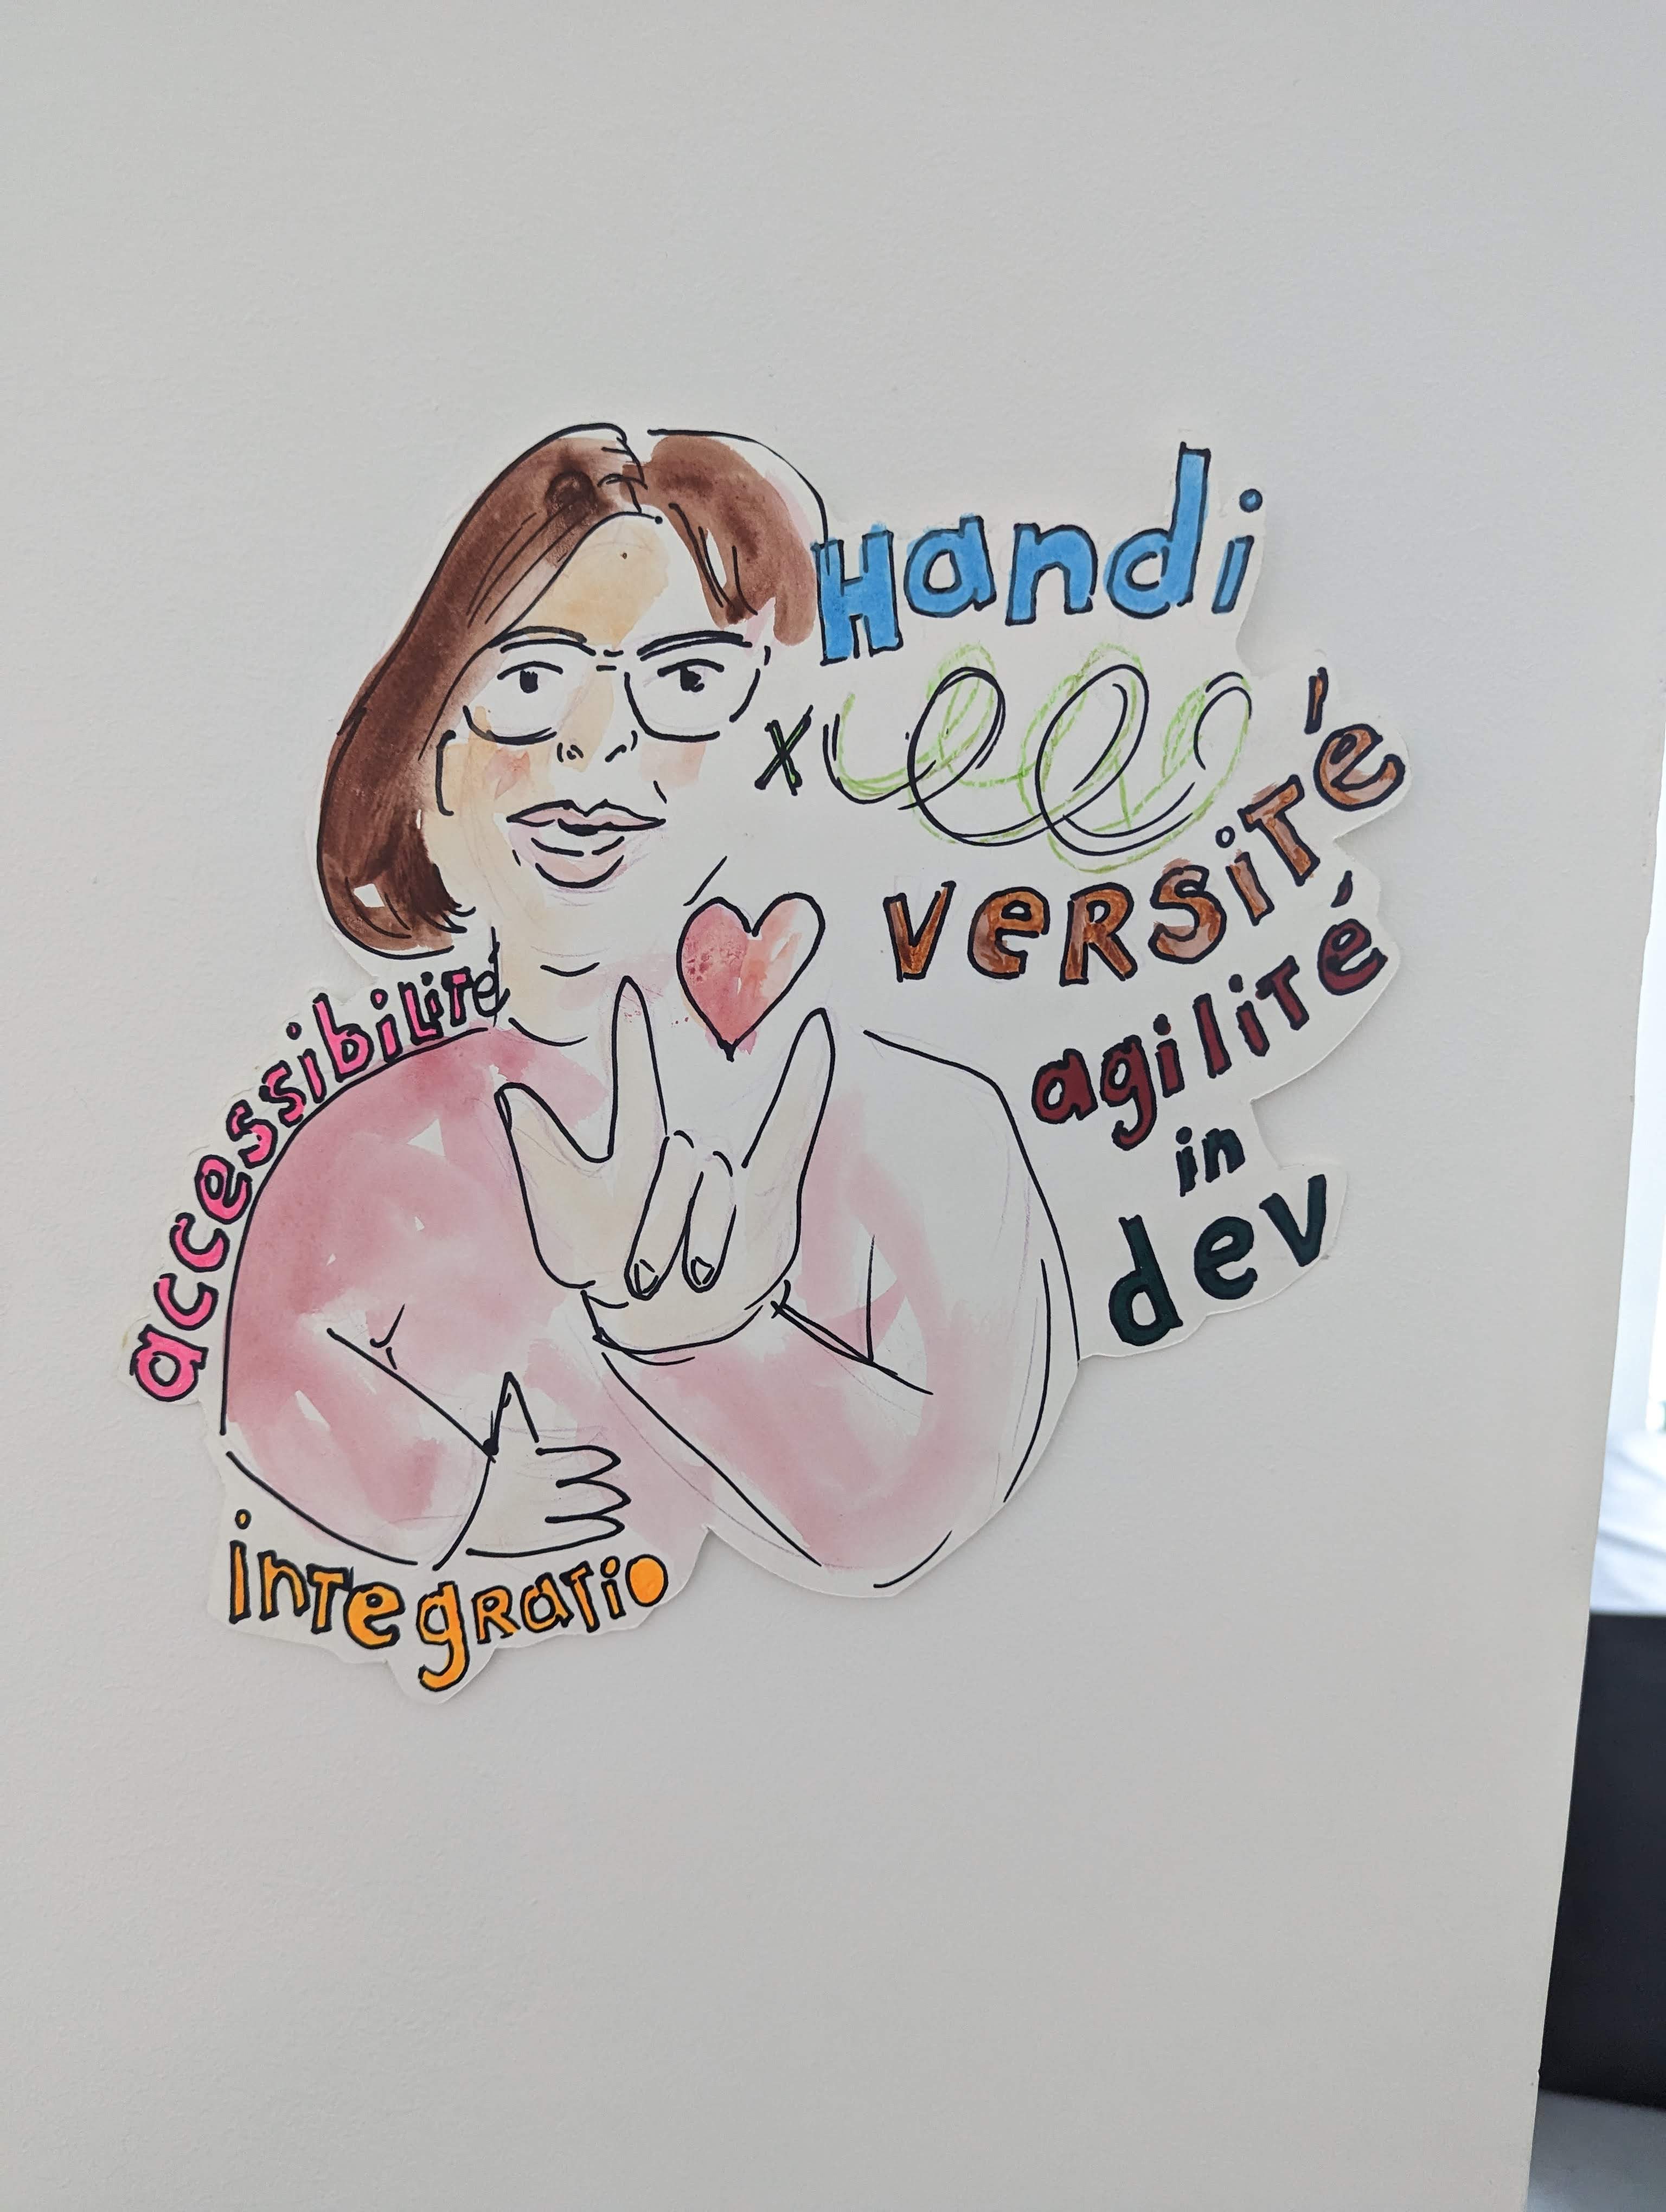 Handi
x
versité
agilité
in
dev
accessibilité
integratio